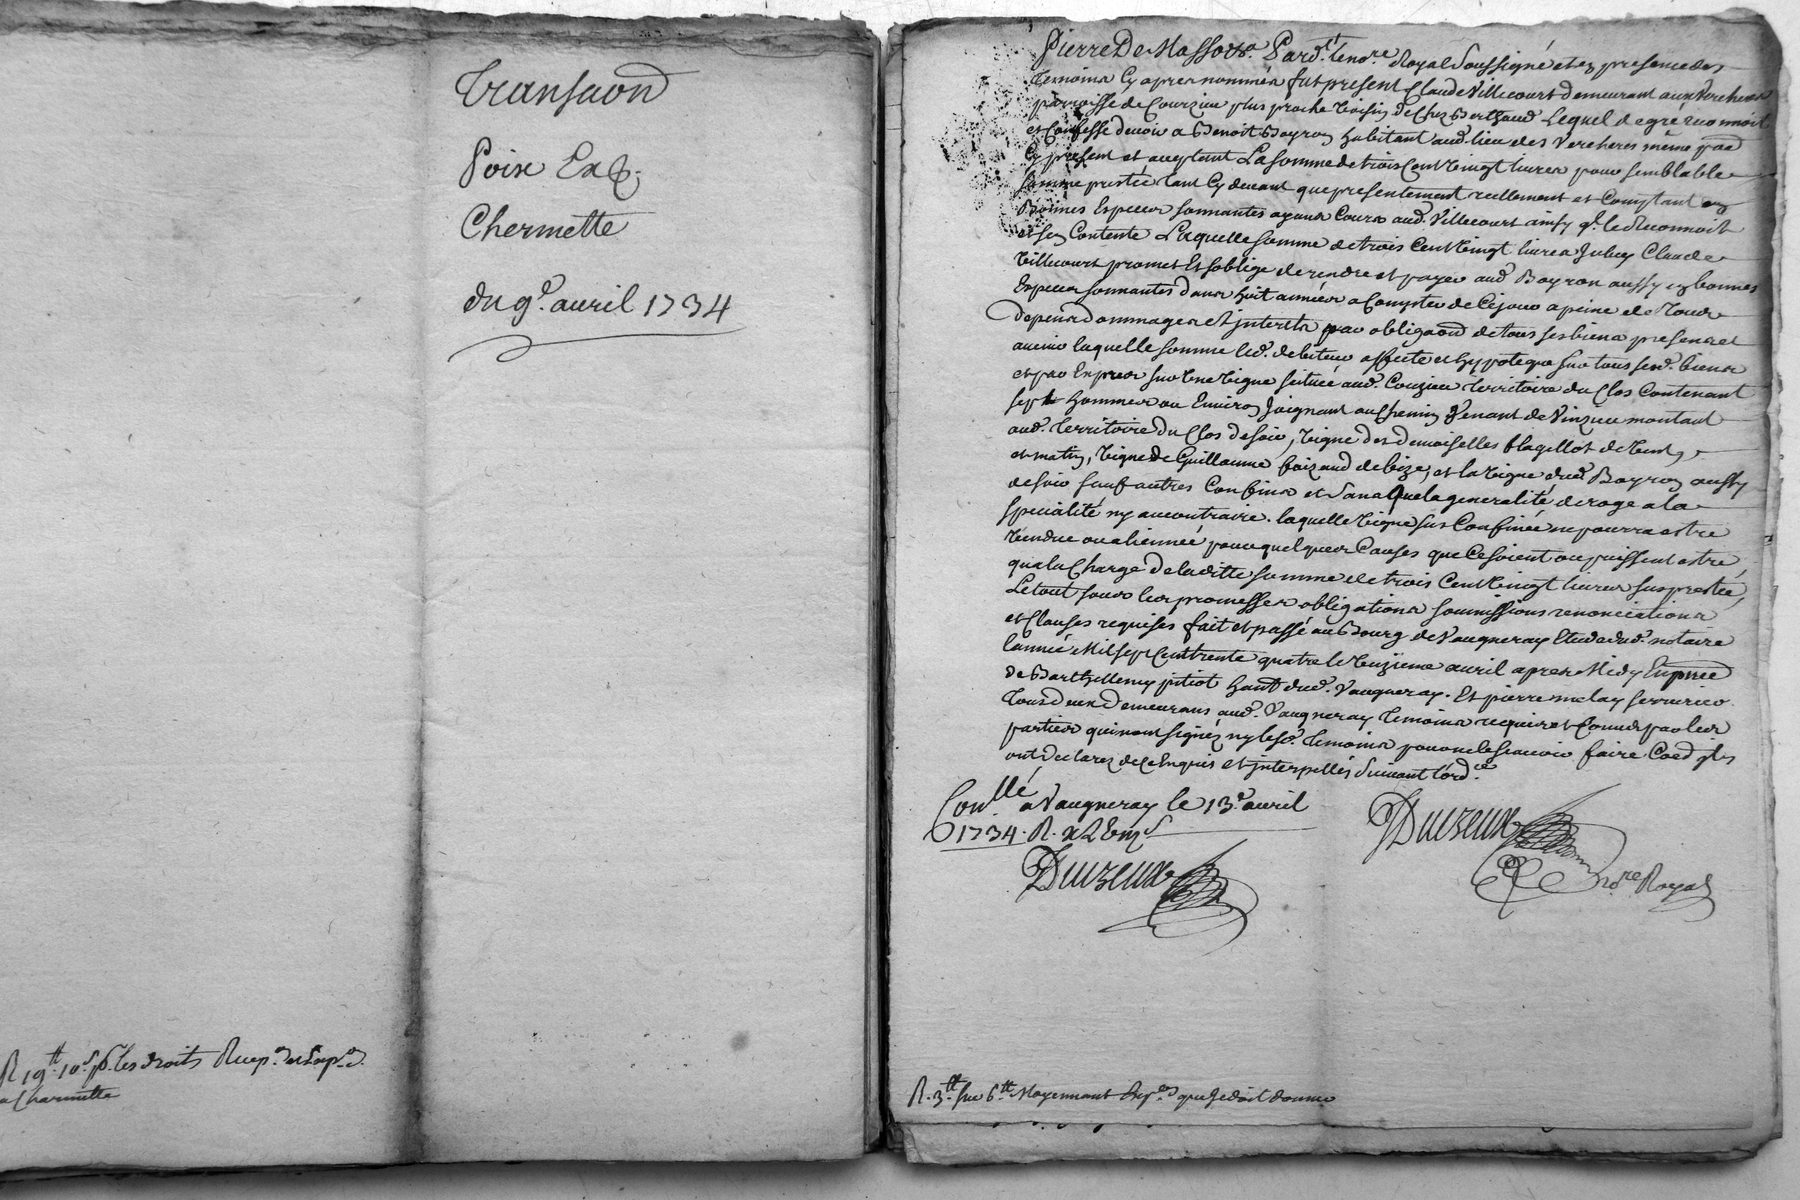 Transaon
Poix Et
Chermette
du 9.e avril 1734
R 19.tt 10.s p.r les droits
a Charmette
Pardt. le no.re Royal soussigné et en presence des
temoins cy apres nommés fut present Claude Villecourt demeurant aux Vercheres
paroisse de Courzieu plus proche voisin de Chez Berthaud Lequel de gre reconnoit
et Confesse devoir a Benoit Bayron habitant aud. lieu des Vercheres même
Cy present et aceptant La somme de trois Cent vingt livres pour semblable
somme prestée tant Cy devant que presentement reellement et Comptant en
Bonnes Especes sonnantes ayans Cours aud. Villecourt ainsy q.l le Reconnoit
et sen Contente Laquelle somme de trois Cent vingt livres Claude
Villecourt promet Et soblige de rendre et payer aud. Bayron aussy en bonnes
Especes sonnantes dans huit années a Compter de Cejour a peine de tous
depens dommages et interets par obligaon de tous ses biens presens et
avenir laquelle somme led. debiteur affecte et hypoteque sur tous sesd. biens
et par Expres sur une Vigne scituée aud. Couzieu territoire du Clos Contenant
sept hommées ou Environ joignant au Chemin venant de Vinzieu montant
aud. territoire du Clos de soir, Vigne des demoiselles flagellot de Vent
et matin, Vigne de Guillaume de bize, et la Vigne dud. Bayron aussy
de soir sauf autres Confins et sans que la generalité deroge a la
specialité ny au contraire. laquelle Vigne sus Confinée ne pourra estre
Vendue ou alienneé pour quelques Causes que Ce soient ou puissent estre
qua la Charge de laditte somme de trois Cent Vingt livres sus prestée,
Le tout sous les promesses obligations soumissions renonciations
et Clauses requises fait et passé au Bourg de Vaugneray Etude dud. notaire
lannée Mil sept Cent trente quatre le unzieme avril apres Midy En pnce
de Barthellemy pitiot dud. Vaugneray. Et pierre melay serrurier
tous deux demeurans aud. Vaugneray temoins requis et Connus par les
parties qui nont signéz ny lesd. temoins pour ne le scavoir faire
ont declarez de ce Enquis et interpellés suivant lord.ce
Con.llé a Vaugneray le 13.e avril
1734. R.
Duizeux
Duizeux
no.re Royal
R. 3.tt sur 6.tt Moyennant que Je doit donner